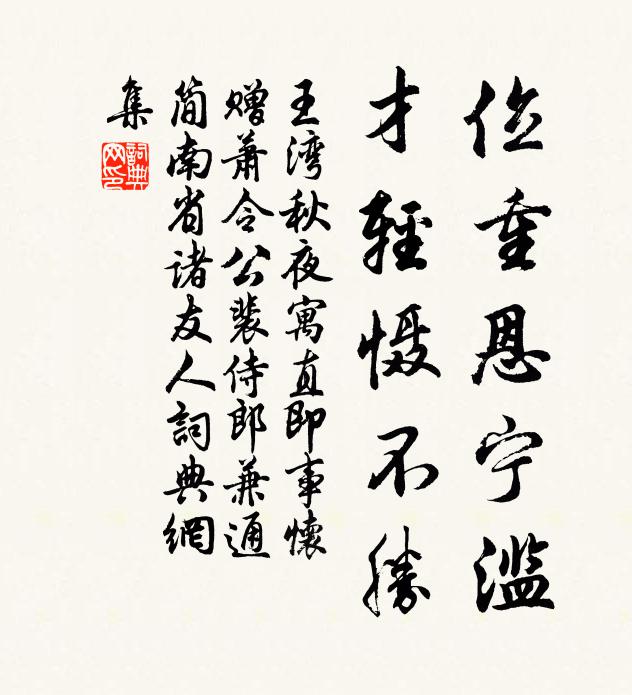 位重恩宁滥
才輕慑不勝
王湾秋夜寓直即事懷
赠萧令公裴侍郎兼通
简南省诸友人詞典網
集
詞典
网印